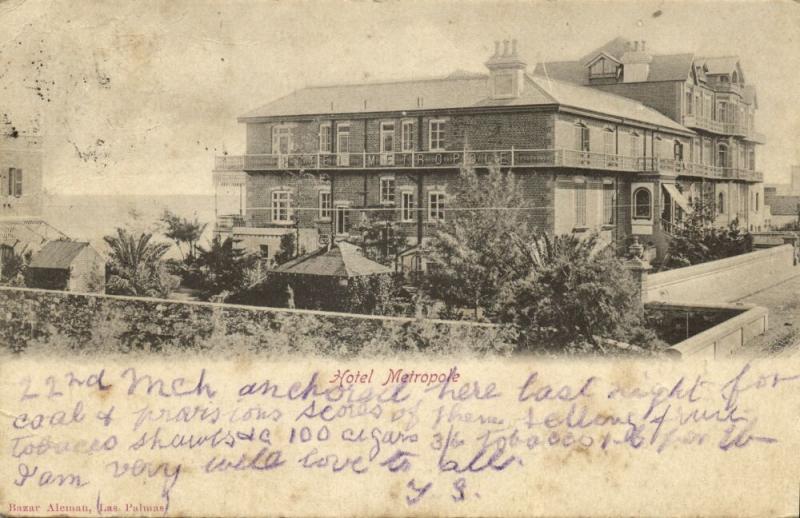 METROPOLE
Hotel Metropole
22nd Mch anchored here last night for
coal & provisions scores of them selling fruit
tobacco shawls &c 100 cigars 3/6 tobacco 1-6 per lb
I am very well love to all.
Bazar Aleman, Las Palmas